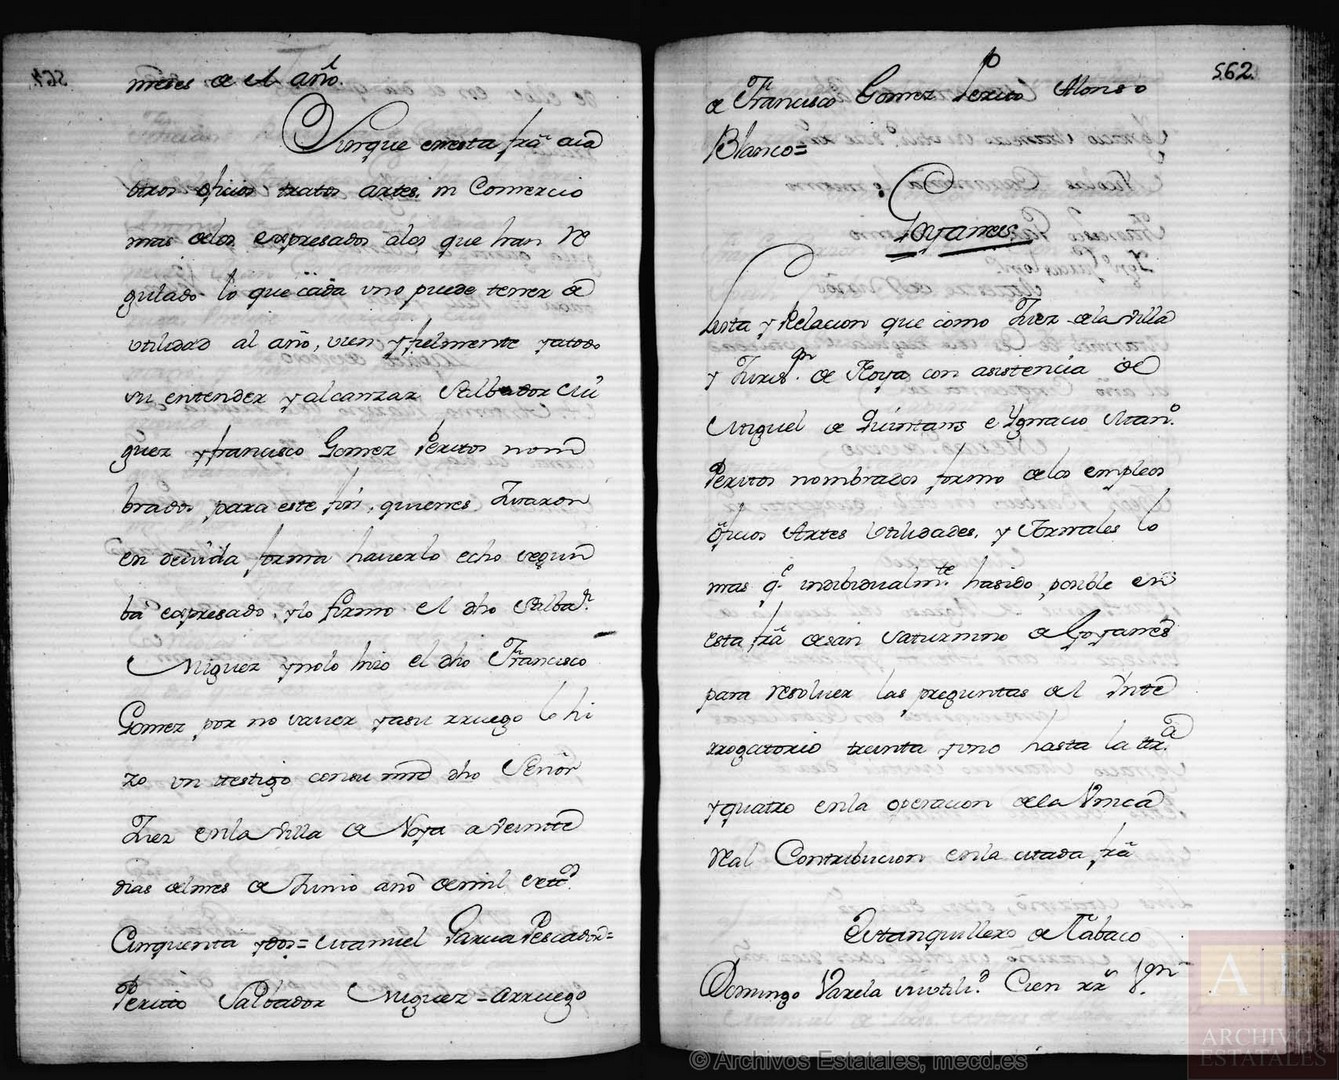 meses de el año.
Aunque en esta frã aia
otros oficios tratos artes in Comercio
mas delos expresados alos que han re
gulado lo que cada uno puede tener de
utilidad al año, vien y fielmente yatodo
su entender y alcanzar Salbador Mi
guez yfrancisco Gomez Peritos nom
brados para este fin, quienes Juraron
en devida forma haverlo echo segun
ba expresado, ylo firmo el dho Salbador
Miguez ynolo hizo el dho Francisco
Gomez por no saver yasu rruego lo hi
zo un testigo consu mrd dho Señor
Juez enla Villa de Noya a veinte
dias delmes de Junio año demil sete.os
Cinquenta ydos= Manuel Garcia Pescador=
Perito Salbador Miguez = Arruego
562
de Francisco Gomez Perito Alonso
Blanco=
Goyanes
Lista y Relacion que como Juez dela Villa
y Juris.on de Noya con asistencia de
Miguel de Quintans e Ygnacio Man.o
Peritos nombrados formo delos empleos
oficios Artes Utilidades, y Jornales lo
mas q.e indibidualm.te hasido posible en
esta frã desan Saturnino de Goyanes
para resolver las preguntas del Ynte
rrogatorio treinta yuno hasta la tr.a
yquatro enla operacion dela Unica
Real Contribucion enla citada frã
Estanquillero de Tabaco
Domingo Varela suutili.d Cien rr.s V.on
© Archivos Estatales, mecd.es
ARCHIVOS
ESTATALES